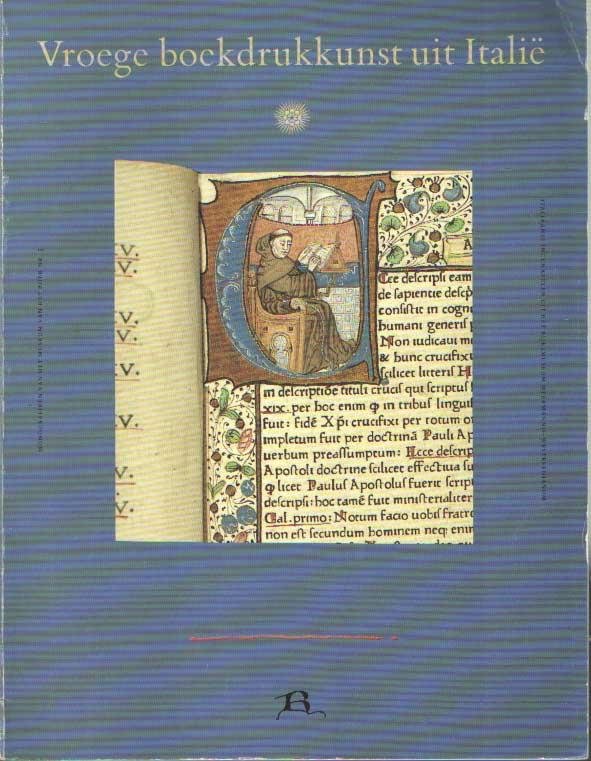 Vroege boekdrukkunst uit Italië
V.
V.
V.
V.
V.
V.
V.
V.
E
A
Cce descripsi eam
de sapientie descp̄
consistit in cogni
humani generis
Non iudicaui
& hunc crucifixu
scilicet litteris H
in descriptiōe tituli crucis qui scriptus
xix. per hoc enim ꝙ in tribus lingui
fuit: fidē Xp̄i crucifixi per totum o
impletum fuit per doctrinā Pauli Ap
uerbum preassumptum: Ecce descrip
Apostoli doctrine scilicet effectiua su
ꝙ licet Paulus Apostolus fuerit scrip
descripsi: hoc tamē fuit ministerialiter
Gal. primo: Notum facio uobis fratre
non est secundum hominem neq; enim
R